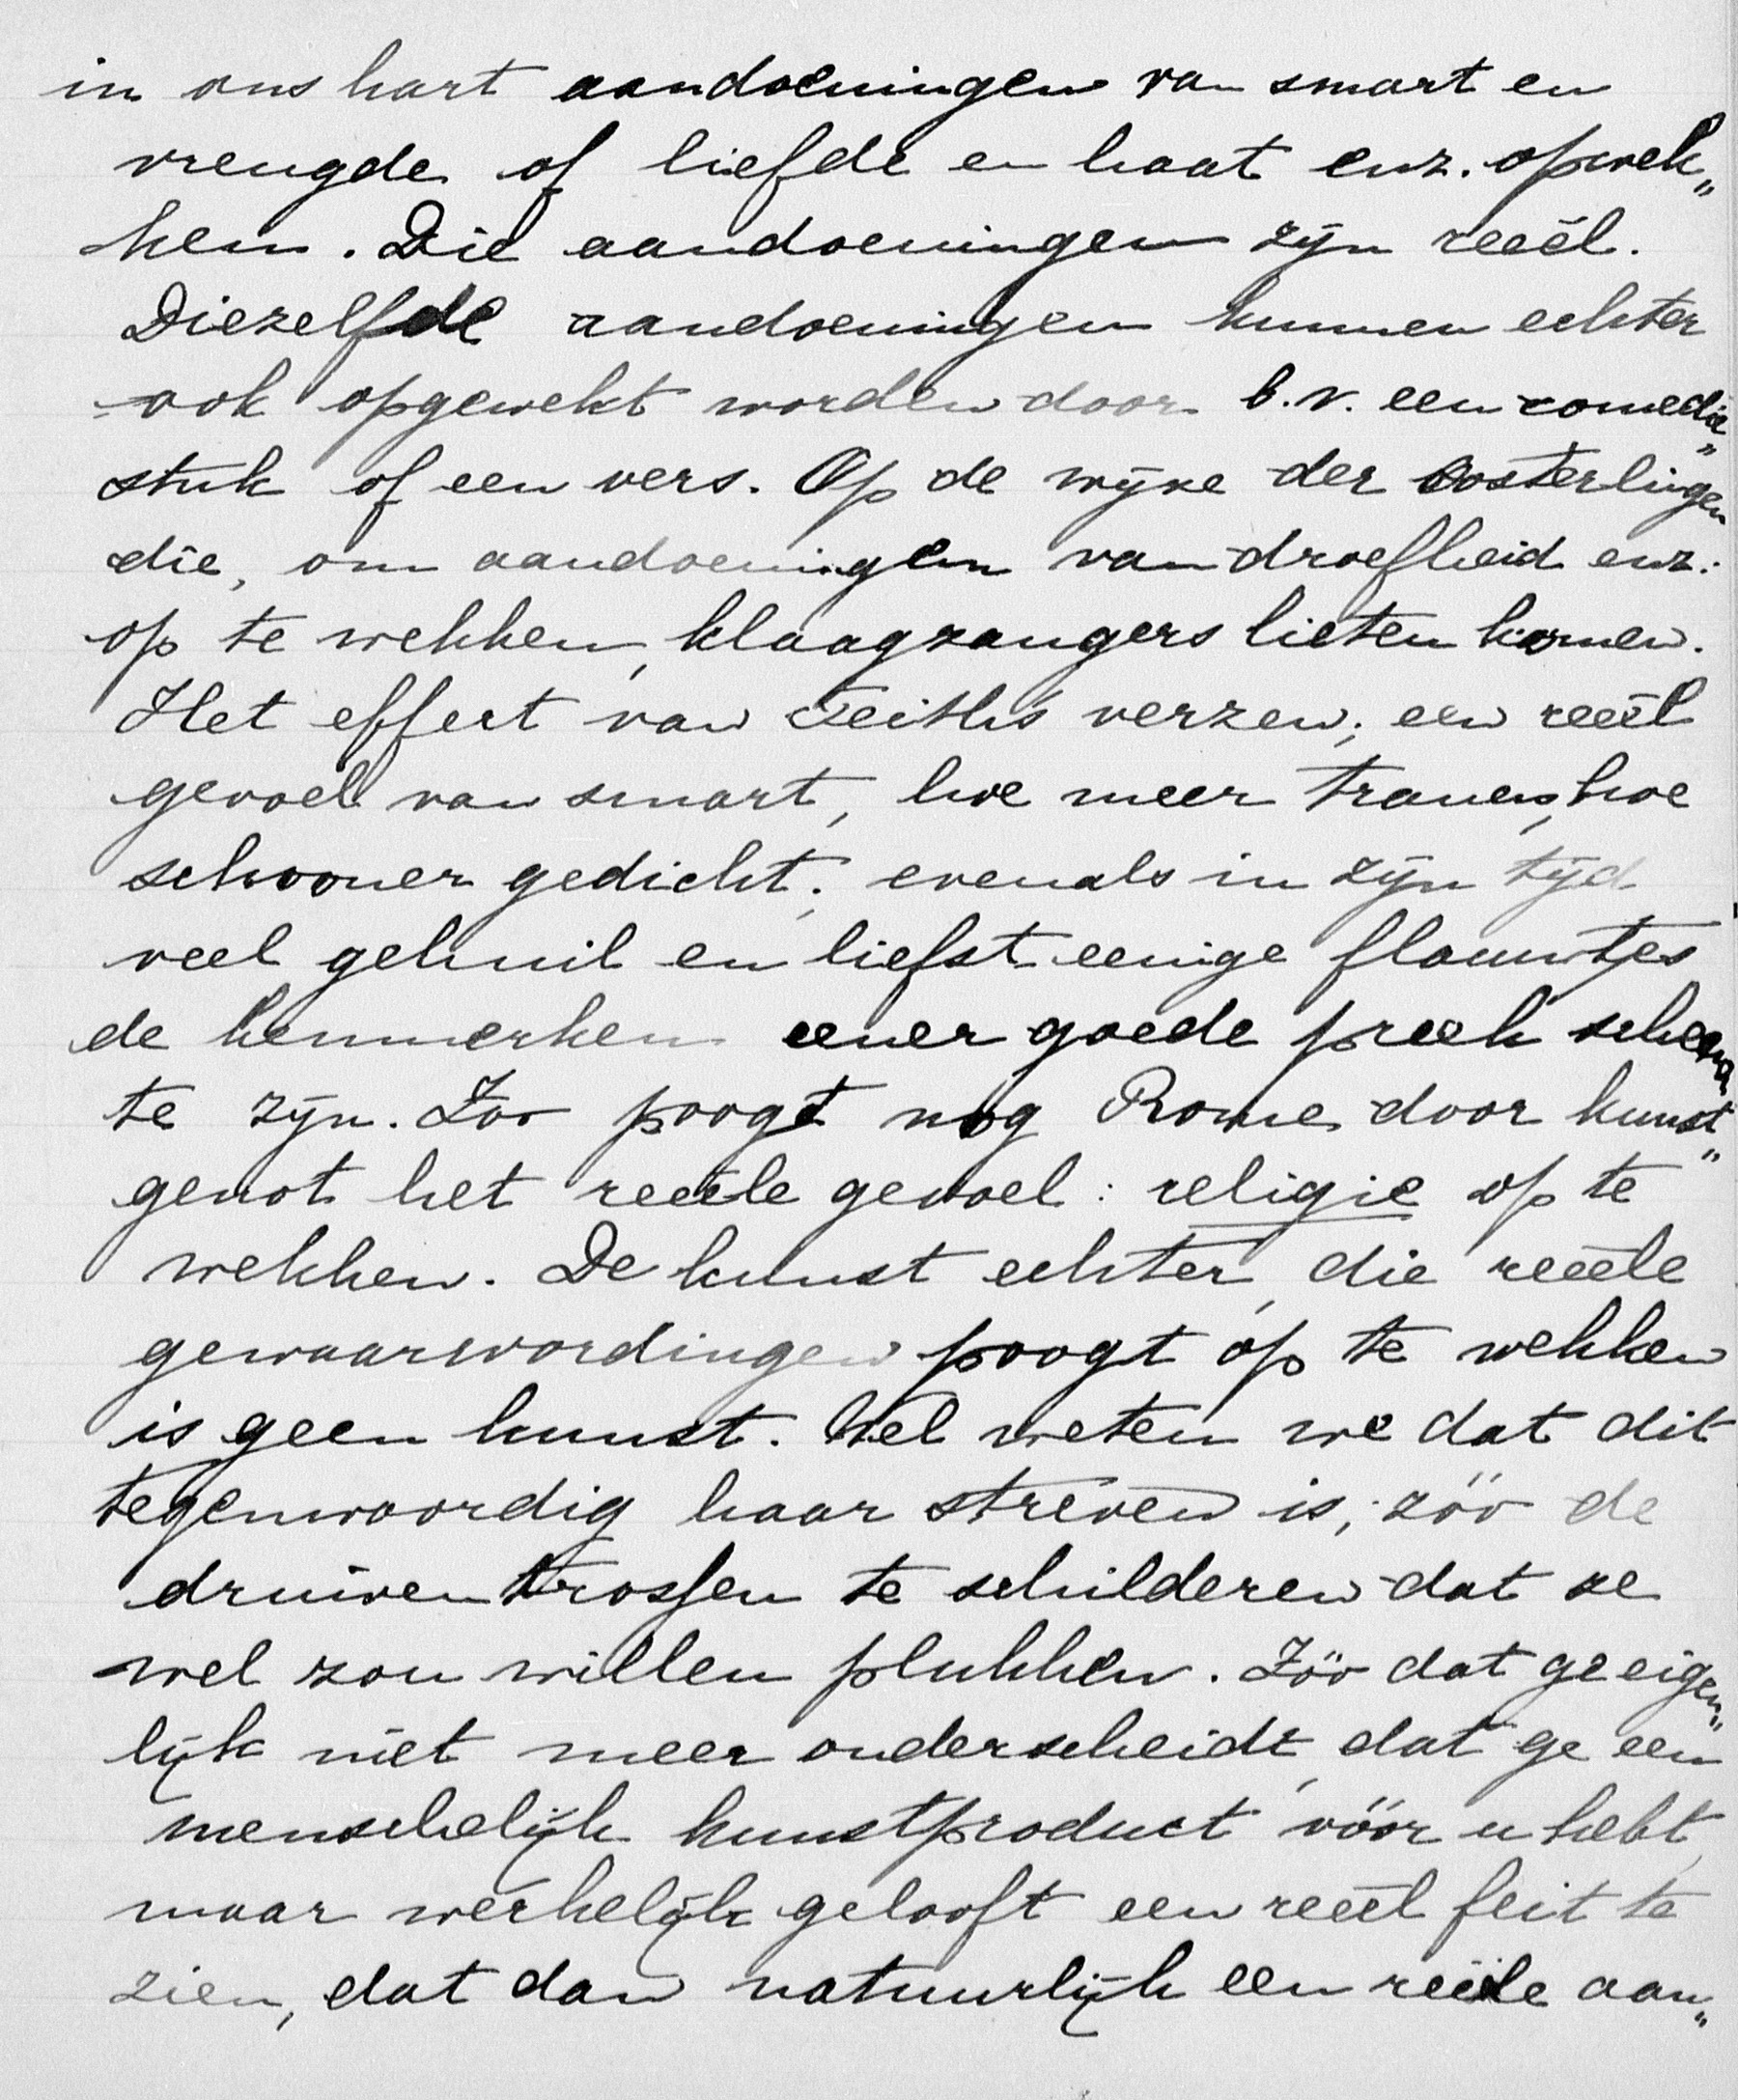 in ons hart aandoeningen van smart en
vreugde of liefde en haat enz. opwek„
ken. Die aandoeningen zijn reeël.
Diezelfde aandoeningen kunnen echter
ook opgewekt worden door b.v. een comedie„
stuk of een vers. Op de wijze der Oosterlingen
die, om aandoeningen van droefheid enz.
op te wekken, klaagzangers lieten komen.
Het effect van Feith's verzen; een reeël
gevoel van smart, hoe meer tranen, hoe
schooner gedicht; evenals in zijn tijd
veel gehuil en liefst eenige flauwtjes
de kenmerken eener goede preek schenen
te zijn. Zoo poogt nog Rome door kunst„
genot het reeële gevoel: religie op te
wekken. De kunst echter, die reeële
gewaarwordingen poogt op te wekken
is geen kunst. Wel weten we dat dit
tegenwoordig haar streven is; zóó de
druiventrossen te schilderen dat ze
wel zou willen plukken. Zóó dat ge eigen„
lijk niet meer onderscheidt, dat ge een
menschelijk kunstproduct vóór u hebt,
maar werkelijk gelooft een reeël feit te
zien, dat dan natuurlijk een reeële aan„